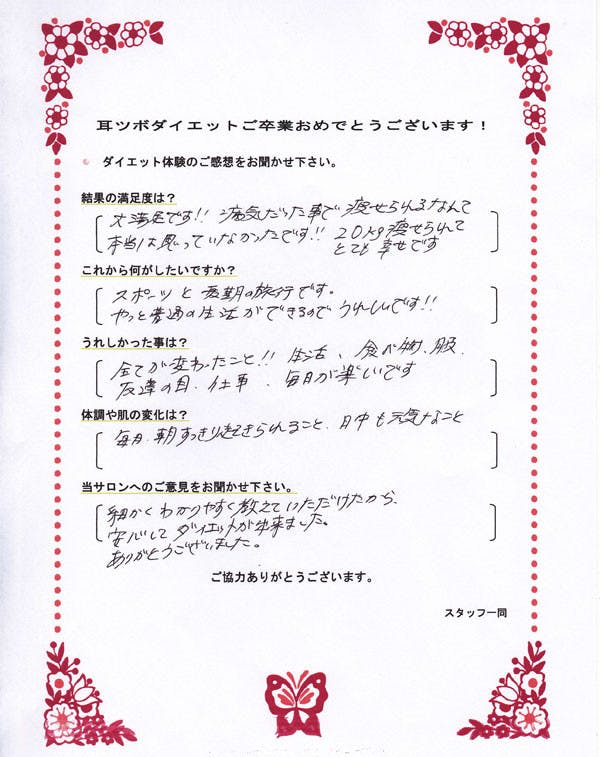 耳ツボダイエットご卒業おめでとうございます！
ダイエット体験のご感想をお聞かせ下さい。
結果の満足度は？
大満足です!! 病気だった事で 痩せられるなんて
本当は思っていなかったです!! 20kg痩せられて
とても 幸せです
これから何がしたいですか？
スポーツと 長期の旅行です。
やっと普通の生活ができるので うれしいです!!
うれしかった事は？
全てが変わったこと!! 生活、食べ物、服、
友達の目、仕事、毎日が楽しいです
体調や肌の変化は？
毎日、朝すっきり起きられること、日中も元気なこと
当サロンへのご意見をお聞かせ下さい。
細かくわかりやすく教えていただけたから、
安心して ダイエットが出来ました。
ありがとうございました。
ご協力ありがとうございます。
スタッフ一同